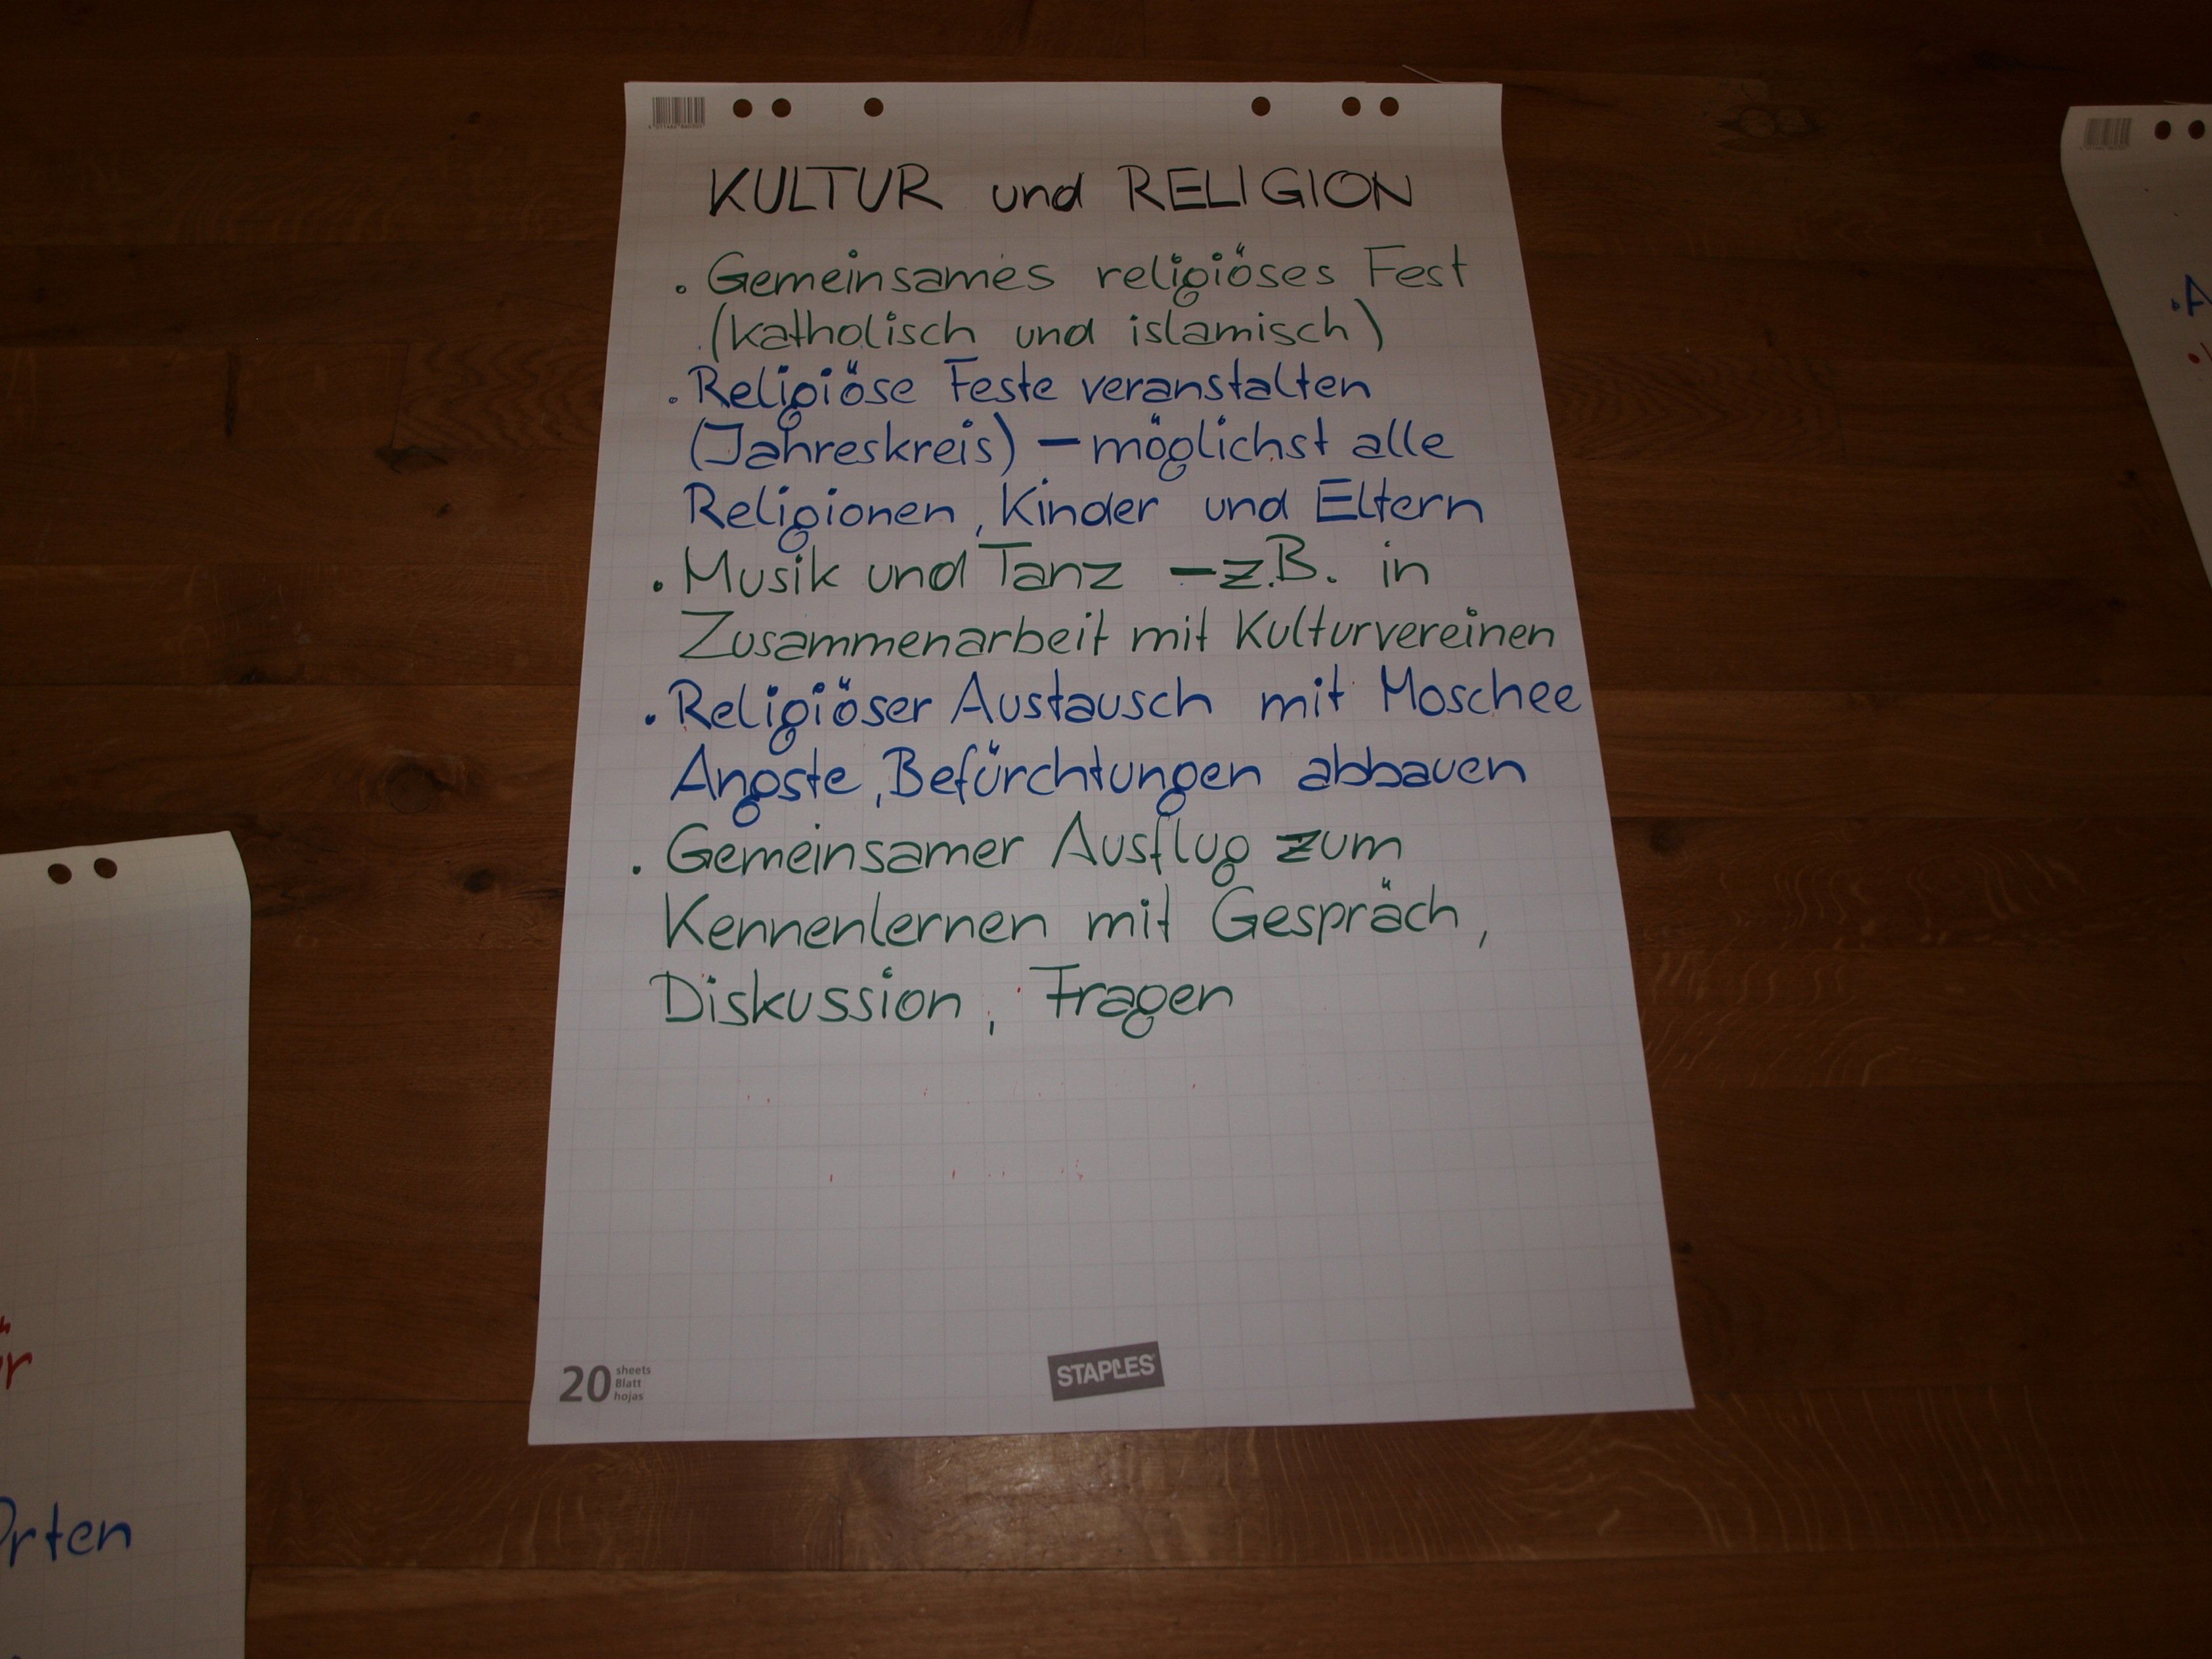 KULTUR und RELIGION
. Gemeinsames religiöses Fest
(katholisch und islamisch)
. Religiöse Feste veranstalten
(Jahreskreis) – möglichst alle
Religionen, Kinder und Eltern
. Musik und Tanz – z.B. in
Zusammenarbeit mit Kulturvereinen
. Religiöser Austausch mit Moschee
Angste, Befürchtungen abbauen
. Gemeinsamer Ausflug zum
Kennenlernen mit Gespräch,
Diskussion, Fragen
20 sheets
Blatt
hojas
STAPLES
Orten